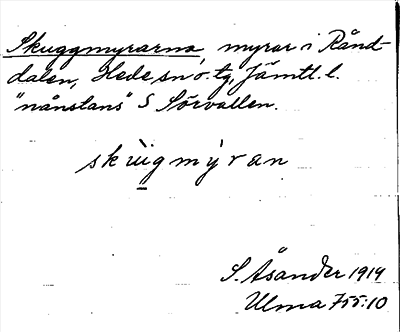 Skuggmyrarna, myrar i Rånd-
dalen, Hede sn o. tg, Jämtl. l.
"nånstans" S Sörvallen.
skùigmỳran
S. Åsander 1919
Ulma 755:10